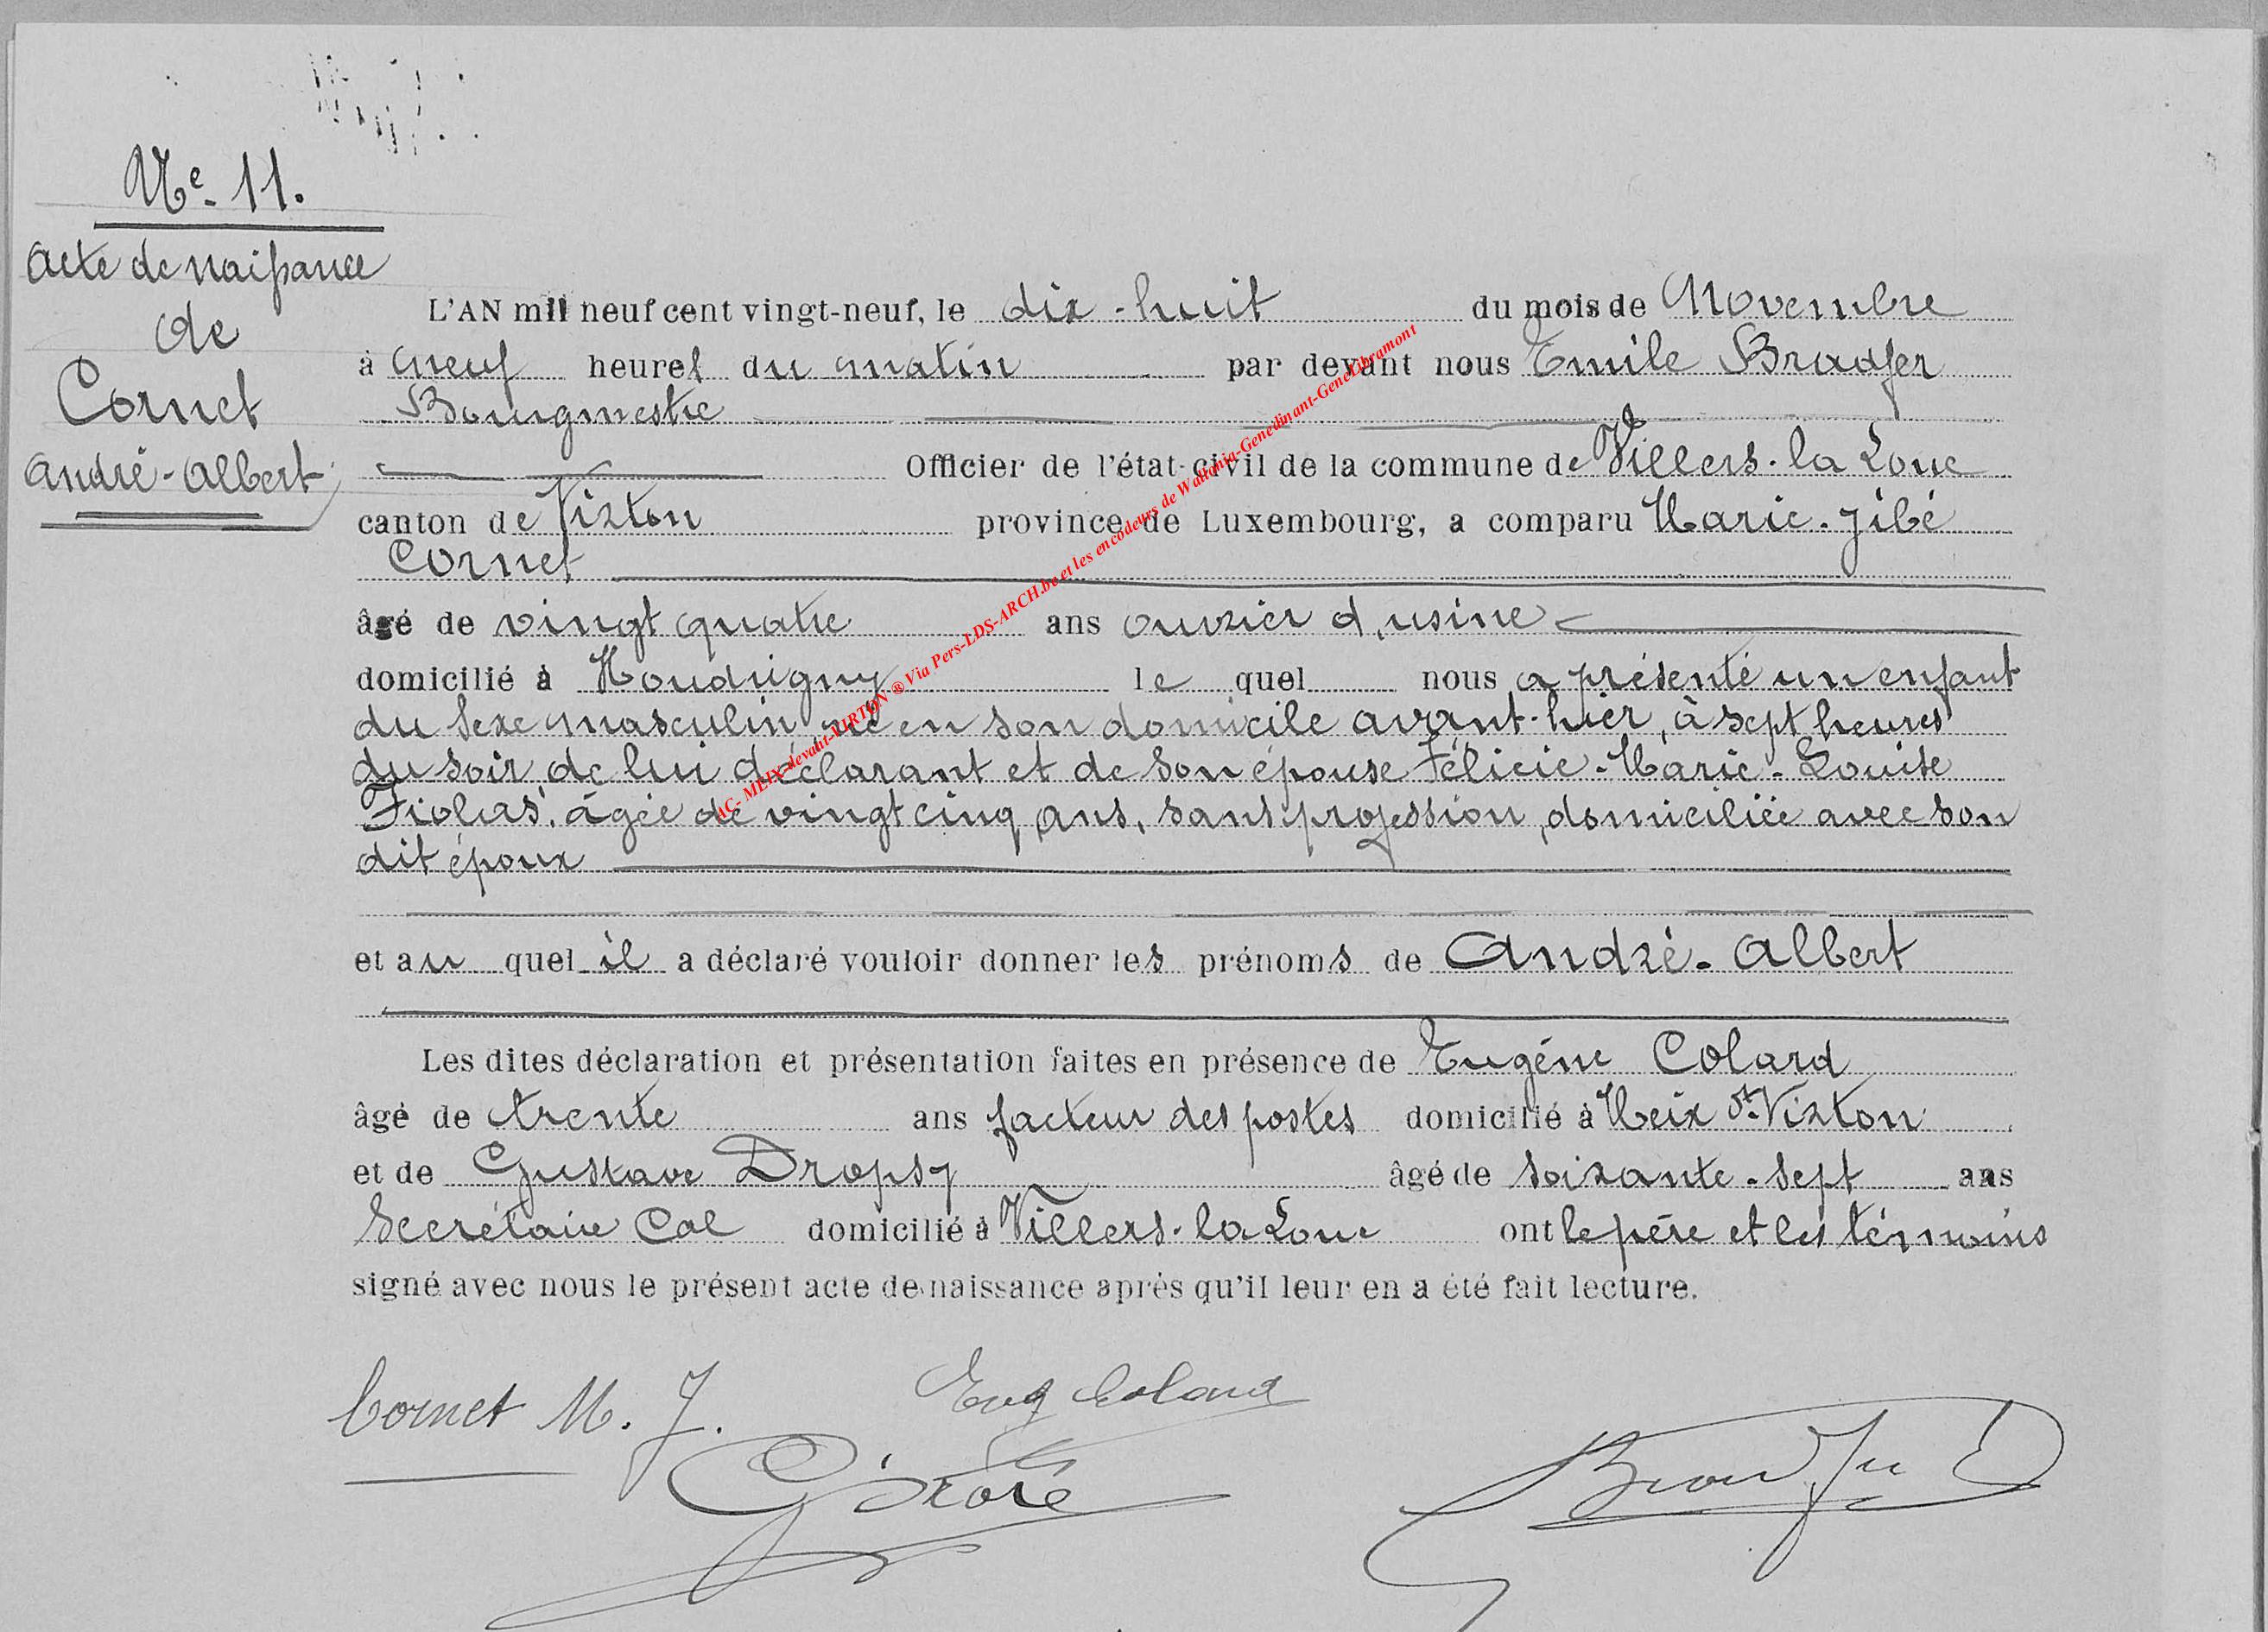 Nº 11.
Acte de naissance
de
Cornet
André-Albert
L'AN mil neuf cent vingt-neuf, le dix-huit du mois de Novembre
à neuf heures du matin par devant nous Emile Bradfer
Bourgmestre
Officier de l'état-civil de la commune de Villers-la Loue
canton de Virton province de Luxembourg, a comparu Marie-
Cornet
âgé de vingt quatre ans ouvrier d'usine
domicilié à Houdrigny le quel nous a présenté un enfant
du sexe masculin, né en son domicile avant-hier, à sept heures
du soir, de lui déclarant et de son épouse Félicie-Marie-Louise
âgée de vingt cinq ans, sans profession, domiciliée avec son
dit époux
et au quel il a déclaré vouloir donner les prénoms de André-Albert
Les dites déclaration et présentation faites en présence de Eugène Colard
âgé de trente ans facteur des postes domicilié à Meix dt Virton
et de Gustave Dropsy âgé de soixante-sept ans
Secrétaire Cal domicilié à Villers-la Loue ont le père et les témoins
signé avec nous le présent acte de naissance après qu'il leur en a été fait lecture.
Cornet M. J. Eug Colard
Bradfer
AC- MEIX-devant-VIRTON ® Via Pers-LDS-ARCH.be et les encodeurs de Wallonia-Genedinant-GeneLibramont